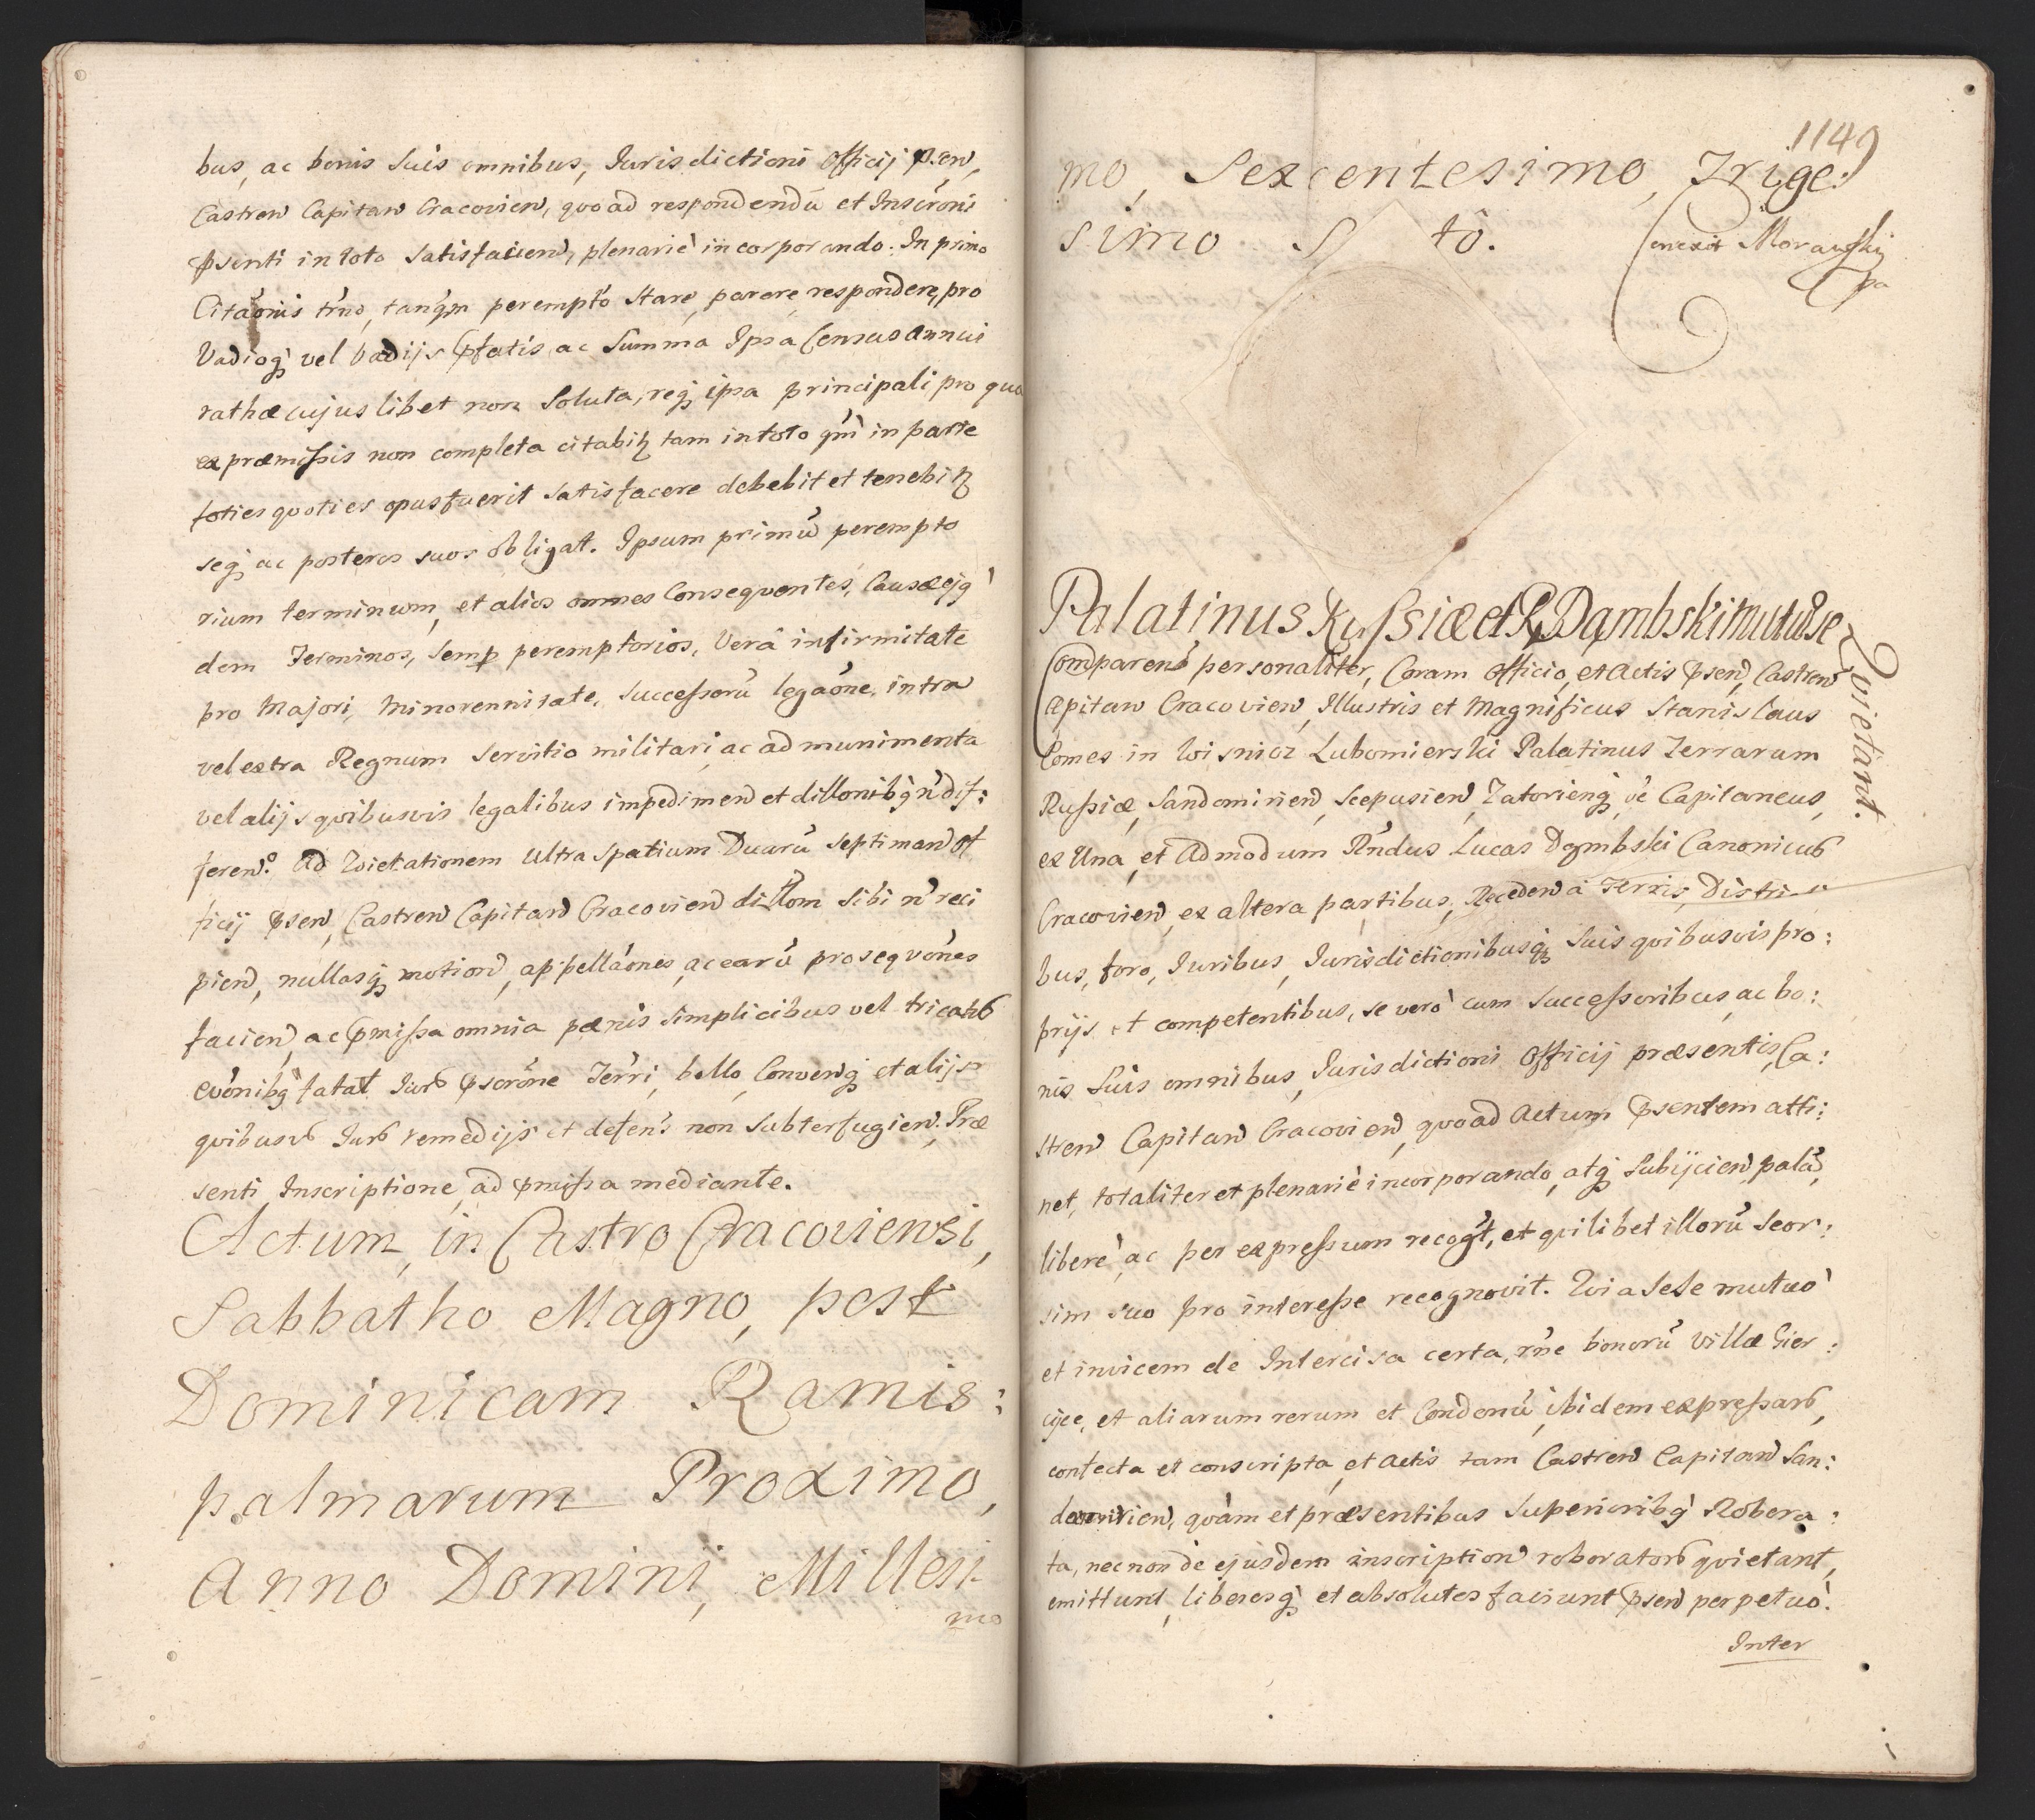 bus, ac bonis Suis omnibus, Jurisdictioni Officij Psen,
Castren Capitan Cracovien, quoad respondendū et Inscrōni
Psenti in toto Satisfacien, plenariè incorporando. In primo
Citāonis trn̄o, tanq̄m perempt̄o Stare, parere, respondere, pro
Vadioq; vel Vadijs Pfatis, ac Summa Ipsa Census Annui
rathæ cujuslibet non Soluta, req; ipsa principali, pro qua
ex præmissis non completa citabit tam in toto qm̄ in parte
toties quoties opus fuerit Satisfacere debebit et tenebit
seq; ac posteros suos obligat. Ipsum primū perempto
rium terminum, et alios omnes Consequentes, Causæ ejq
dem Terminos, Semp peremptorios, Verâ infirmitate
pro Majori, Minorennitate, Successorū legāone, intra
vel extra Regnum Servitio militari, ac ad munimenta
vel alijs quibusvis legalibus impedimen et dillonibq n̄ dif:
feren. Ad Evictationem Ultra Spatium Duarū Septiman Of
ficij Psen, Castren Capitan Cracovien dillom Sibi n̄ reci
pien, nullasq; motion, appellāones, ac earū prosequōnes
facien, ac Pmissa omnia pænis Simplicibus vel tricatis
evōnibq fatat Juris Pscrōne Terri, bello, Convenq; et alijs
quibusvis Juris remedijs et defens non Subterfugien. Præ
senti Inscriptione ad Pmissa mediante.
Actum in Castro Cracoviensi,
Sabbatho Magno, post
Dominicam Ramis:
palmarum Proximo,
Anno Domini, Millesi
mo
1149
mo, Sexcentesimo, Trige:
simo S tô.
Conexit Morawskij
Palatinus Russiæ et R. Dąmbski mutuo se
Quietant.
Comparens personaliter, Coram Officio, et Actis Psen, Castren
Capitan Cracovien, Illustris et Magnificus Stanislaus
Comes in Wisnicz Lubomierski Palatinus Terrarum
Russiæ, Sandomirien, Scepusien, Zatorienq; &c Capitaneus,
ex Una, et Admodum Rn̄dus Lucas Dąmbski Canonicus
Cracovien, ex altera partibus, Receden à Terris, Districti
bus, foro, Juribus, Jurisdictionibusq; Suis quibusvis pro:
prijs et competentibus, se verò cum Successoribus, ac bo:
nis Suis omnibus, Jurisdictioni Officij præsentis, Ca:
stren Capitan Cracovien, quoad Actum Psentem atti:
net, totaliter et plenariè incorporando, atq; Subijcien, palā,
liberè ac per expressum recogt, et quilibet illorū Seor:
sim suo pro interesse recognovit. Quia Sese mutuò
et invicem de Intercisa certa, rn̄e bonorū Villæ Gier:
cyce, et aliarum rerum et Condonū, ibidem expressars,
confecta et conscripta, et Actis tam Castren Capitan San:
domirien, quàm et præsentibus Superioribq Robora:
ta, nec non de ejusdem inscription roborators quietant,
emittunt, liberosq; et absolutos faciunt Psen perpetuò.
Inter